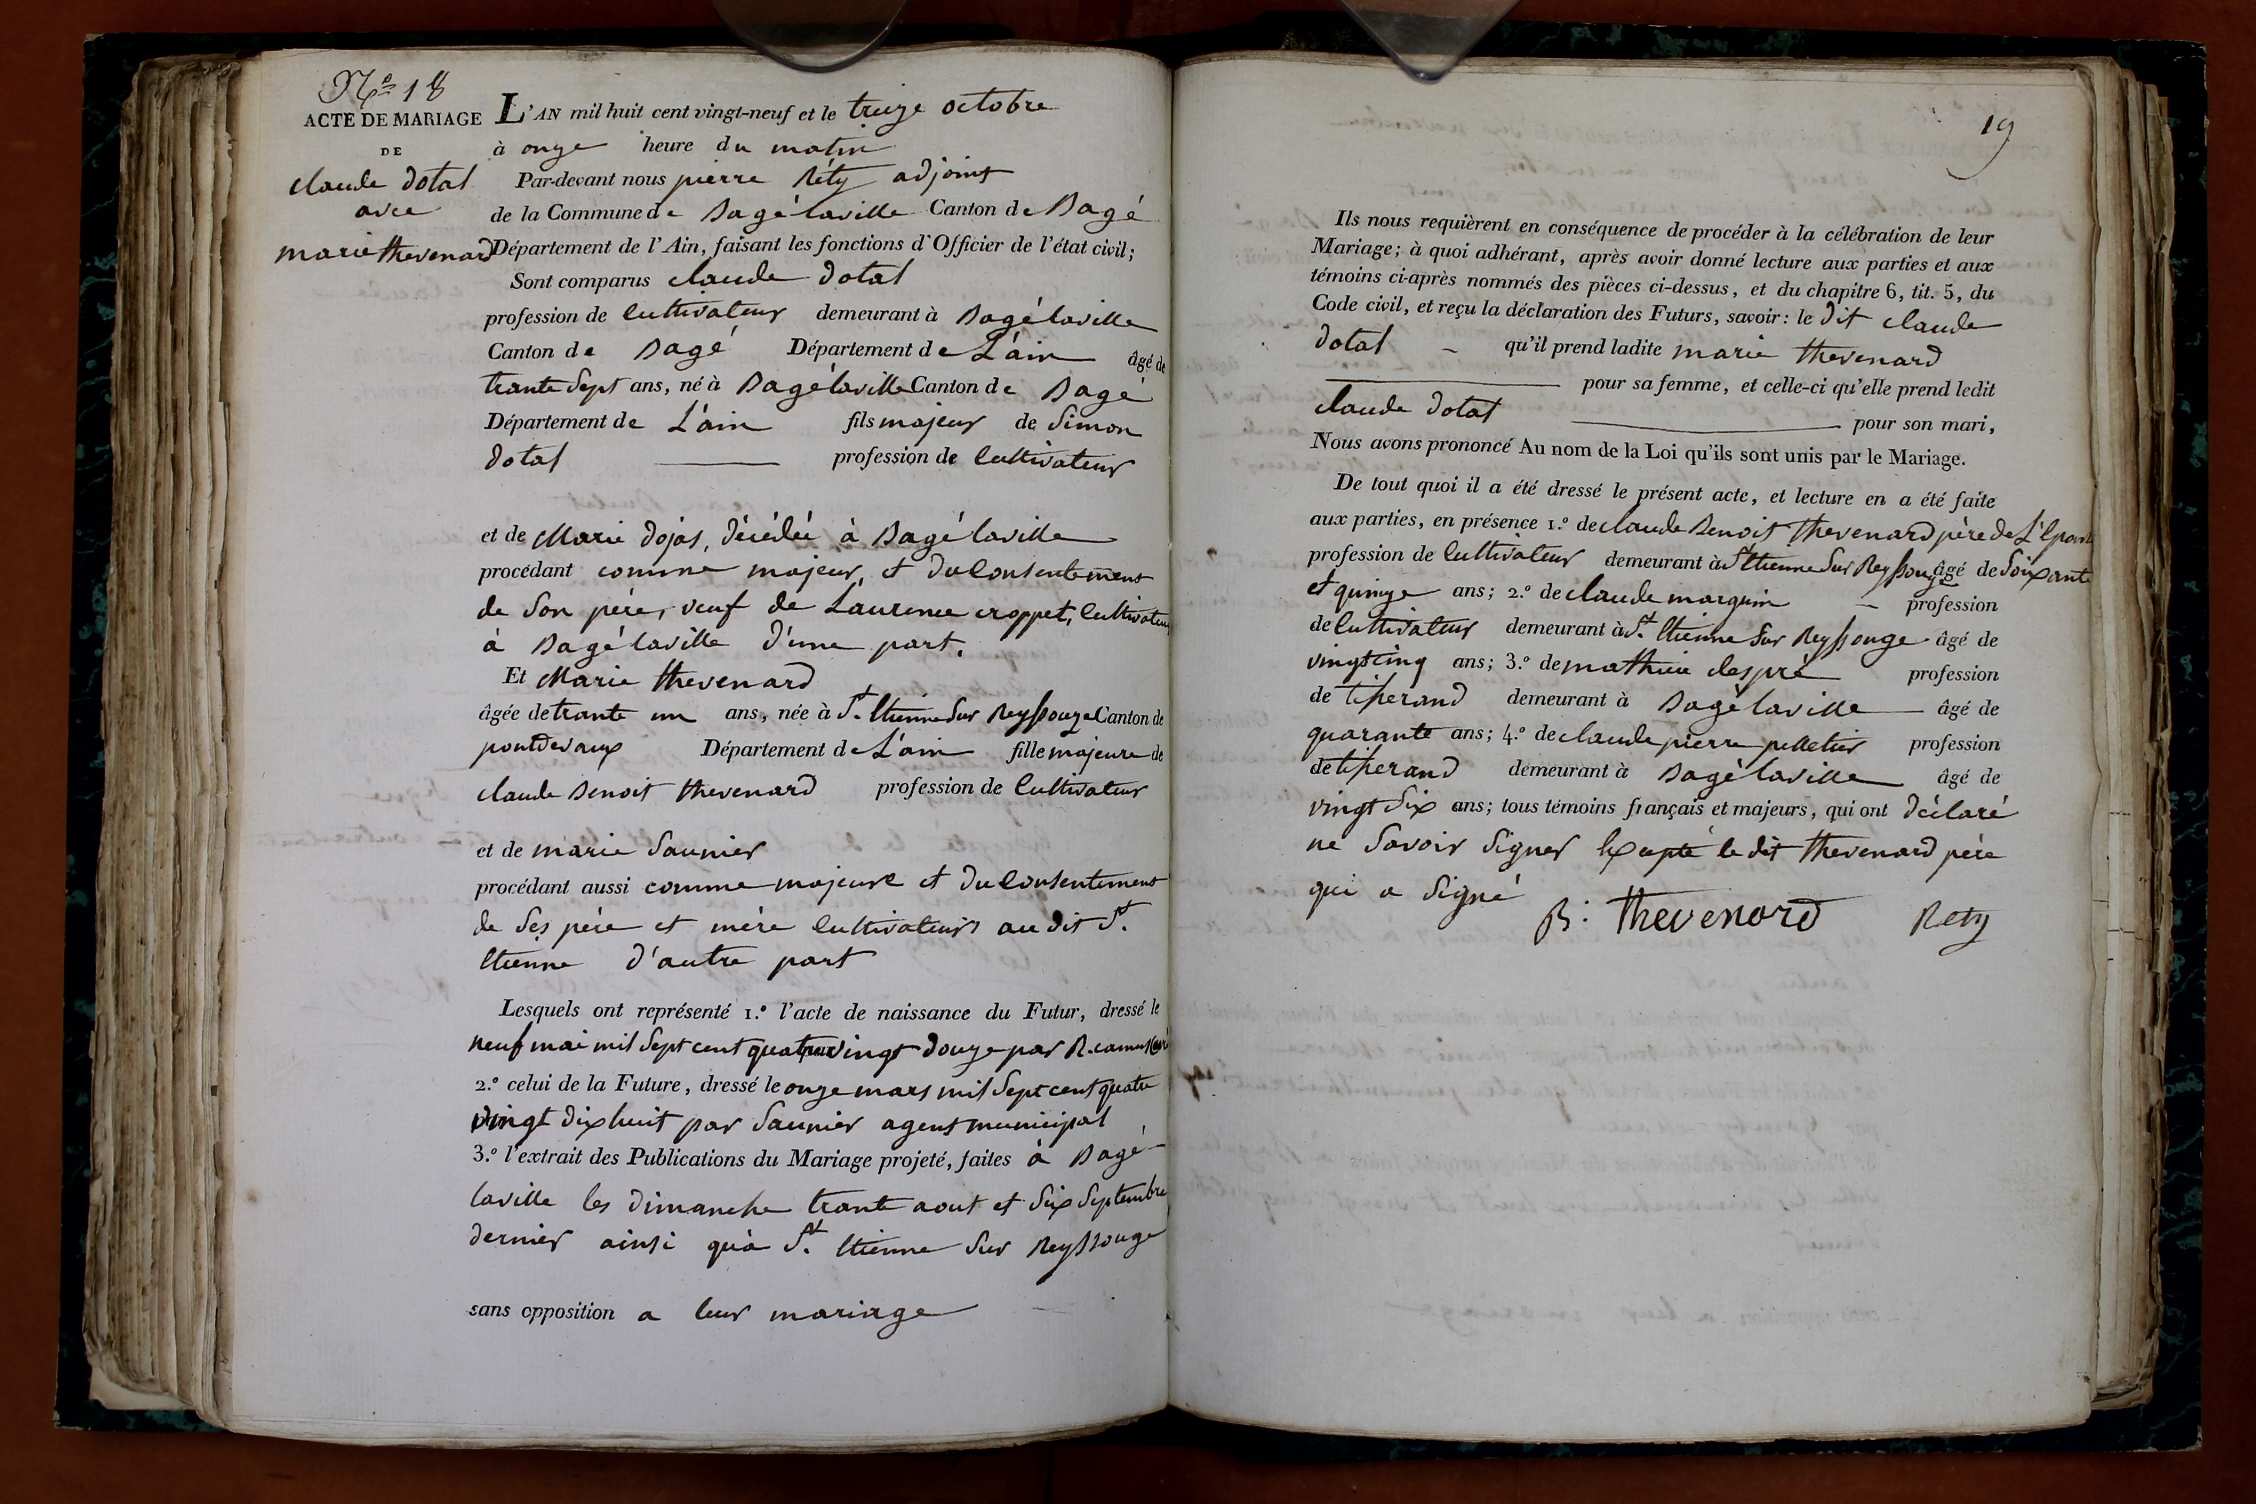 N.o 18
ACTE DE MARIAGE
DE
claude dotal
avec
marie thevenard
L'AN mil huit cent vingt-neuf et le treize octobre
à onze heure du matin
Par-devant nous pierre Réty adjoint
de la Commune de Bagé laville Canton de Bagé
Département de l'Ain, faisant les fonctions d'Officier de l'état civil;
Sont comparus claude dotal
profession de cultivateur demeurant à Bagé laville
Canton de Bagé Département de L'ain âgé de
trante sept ans, né à Bagé laville Canton de Bagé
Département de L'ain fils majeur de Simon
dotal profession de cultivateur
et de Marie dojas, décédée à Bagé laville
procédant comme majeur, et du consentement
de son père, veuf de Laurence croppet, cultivateur
à Bagé laville d'une part.
Et Marie thevenard
âgée de trante un ans, née à St. Etienne sur Reyssouze Canton de
pontdevaux Département de L'ain fille majeure de
claude Benoit thevenard profession de cultivateur
et de marie Saunier
procédant aussi comme majeure et du consentement
de ses père et mère cultivateurs au dit St.
Etienne d'autre part
Lesquels ont représenté 1.o l'acte de naissance du Futur, dressé le
neuf mai mil sept cent quatre vingt douze par R. camus curé
2.o celui de la Future, dressé le onze mars mil sept cent quatre
vingt dix huit par Saunier agent municipal
3.o l'extrait des Publications du Mariage projeté, faites à Bagé
laville les dimanche trante aout et six septembre
dernier ainsi qu'à St. Etienne sur Reyssouze
sans opposition a leur mariage
19
Ils nous requièrent en conséquence de procéder à la célébration de leur
Mariage; à quoi adhérant, après avoir donné lecture aux parties et aux
témoins ci-après nommés des pièces ci-dessus, et du chapitre 6, tit. 5, du
Code civil, et reçu la déclaration des Futurs, savoir: le dit claude
dotal qu'il prend ladite marie thevenard
pour sa femme, et celle-ci qu'elle prend ledit
claude dotal pour son mari,
Nous avons prononcé Au nom de la Loi qu'ils sont unis par le Mariage.
De tout quoi il a été dressé le présent acte, et lecture en a été faite
aux parties, en présence 1.o de claude Benoit thevenard père de L'Epouse
profession de cultivateur demeurant à St Etienne sur Reyssouze âgé de soixante
et quinze ans; 2.o de claude marguin profession
de cultivateur demeurant à St. Etienne sur Reyssouze âgé de
vingt cinq ans; 3.o de mathieu despré profession
de tisserand demeurant à Bagé laville âgé de
quarante ans; 4.o de claude pierre pelletier profession
de tisserand demeurant à Bagé laville âgé de
vingt six ans; tous témoins français et majeurs, qui ont déclaré
ne savoir signer Excepté le dit thevenard père
qui a signé
B: thevenard Rety